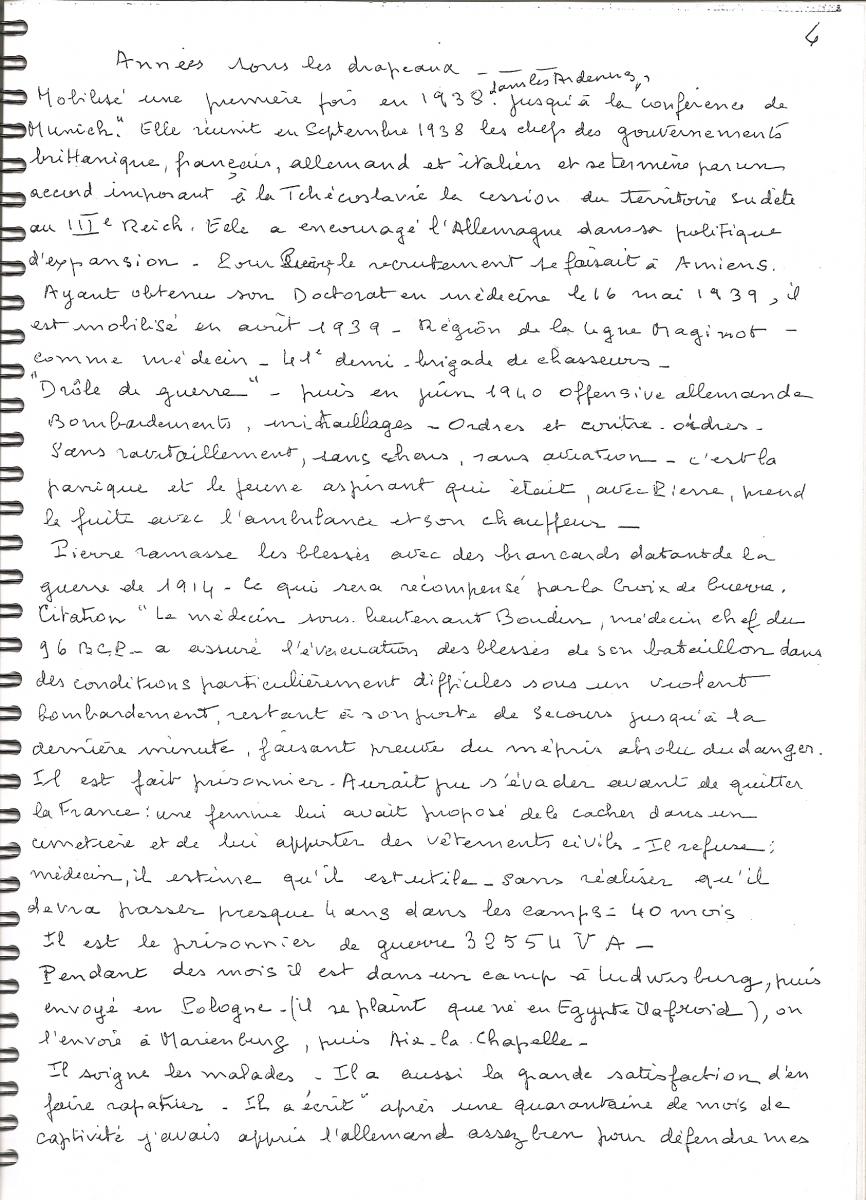 4
Années sous les drapeaux - dans les Ardennes,
Mobilisé une première fois en 1938. jusqu'à la conférence de
Munich." Elle réunit en Septembre 1938 les chefs des gouvernements
brittanique, français, allemand et italien et se termine par un
accord imposant à la Tchécoslavie la cession du territoire sudète
au IIIe Reich. Elle a encouragé l'Allemagne dans sa politique
d'expansion - Pour Pierre le recrutement se faisait à Amiens.
Ayant obtenu son Doctorat en médecine le 16 mai 1939, il
est mobilisé en août 1939 - Région de la ligne Maginot -
comme médecin - 41e demi-brigade de chasseurs -
"Drôle de guerre" - puis en juin 1940 offensive allemande
Bombardements, mitraillages - Ordres et contre-ordres -
Sans ravitaillement, sans chars, sans aviation - c'est la
panique et le jeune aspirant qui était, avec Pierre, prend
la fuite avec l'ambulance et son chauffeur -
Pierre ramasse les blessés avec des brancards datant de la
guerre de 1914 - Ce qui sera récompensé par la Croix de Guerre.
Citation "Le médecin sous-lieutenant Boudin, médecin chef du
96 BCP - a assuré l'évacuation des blessés de son bataillon dans
des conditions particulièrement difficiles sous un violent
bombardement, restant à son poste de secours jusqu'à la
dernière minute, faisant preuve du mépris absolu du danger.
Il est fait prisonnier - Aurait pu s'évader avant de quitter
la France : une femme lui avait proposé de le cacher dans un
cimetière et de lui apporter des vêtements civils - Il refuse ;
médecin, il estime qu'il est utile - sans réaliser qu'il
devra passer presque 4 ans dans les camps = 40 mois
Il est le prisonnier de guerre 32554 V A -
Pendant des mois il est dans un camp à Ludwisburg, puis
envoyé en Pologne - (il se plaint que né en Egypte il a froid), on
l'envoie à Marienburg, puis Aix-la-Chapelle -
Il soigne les malades - Il a aussi la grande satisfaction d'en
faire rapatrier - Il a écrit "après une quarantaine de mois de
captivité j'avais appris l'allemand assez bien pour défendre mes